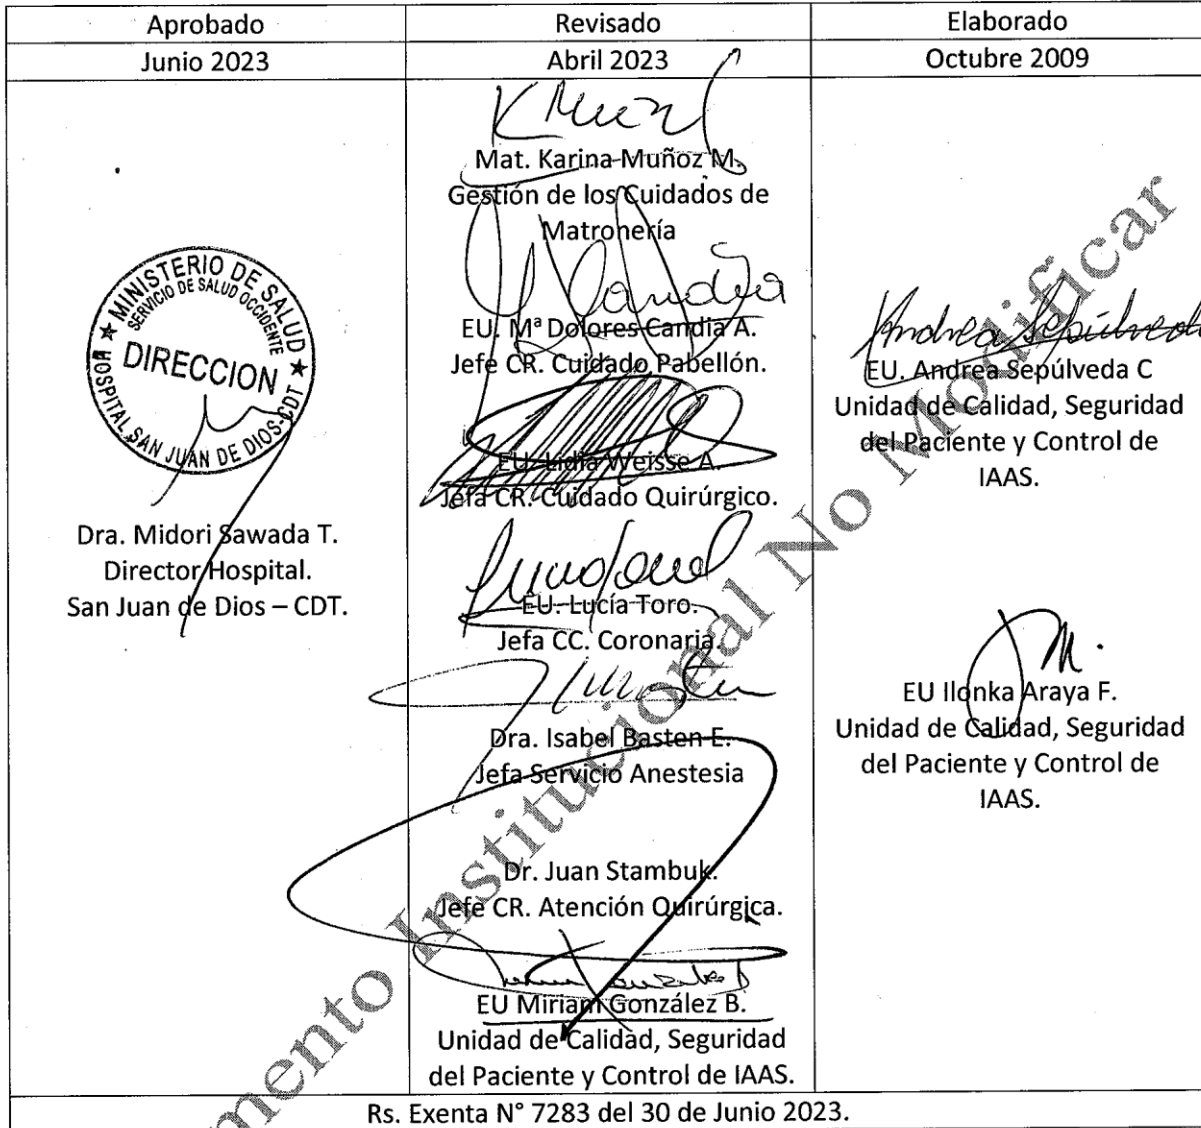 Aprobado
Revisado
Elaborado
Junio 2023
Abril 2023
Octubre 2009
MINISTERIO DE SALUD
SERVICIO DE SALUD OCCIDENTE
DIRECCION
HOSPITAL SAN JUAN DE DIOS-CDT
Dra. Midori Sawada T.
Director Hospital.
San Juan de Dios – CDT.
Mat. Karina Muñoz M.
Gestión de los Cuidados de
Matronería
EU. Mª Dolores Candia A.
Jefe CR. Cuidado Pabellón.
EU. Lidia Weisse A.
Jefa CR. Cuidado Quirúrgico.
EU. Lucía Toro.
Jefa CC. Coronaria.
Dra. Isabel Basten E.
Jefa Servicio Anestesia
Dr. Juan Stambuk.
Jefe CR. Atención Quirúrgica.
EU Miriam González B.
Unidad de Calidad, Seguridad
del Paciente y Control de IAAS.
Andrea Sepúlveda
EU. Andrea Sepúlveda C
Unidad de Calidad, Seguridad
del Paciente y Control de
IAAS.
EU Ilonka Araya F.
Unidad de Calidad, Seguridad
del Paciente y Control de
IAAS.
Rs. Exenta N° 7283 del 30 de Junio 2023.
mento Institucional No Modificar